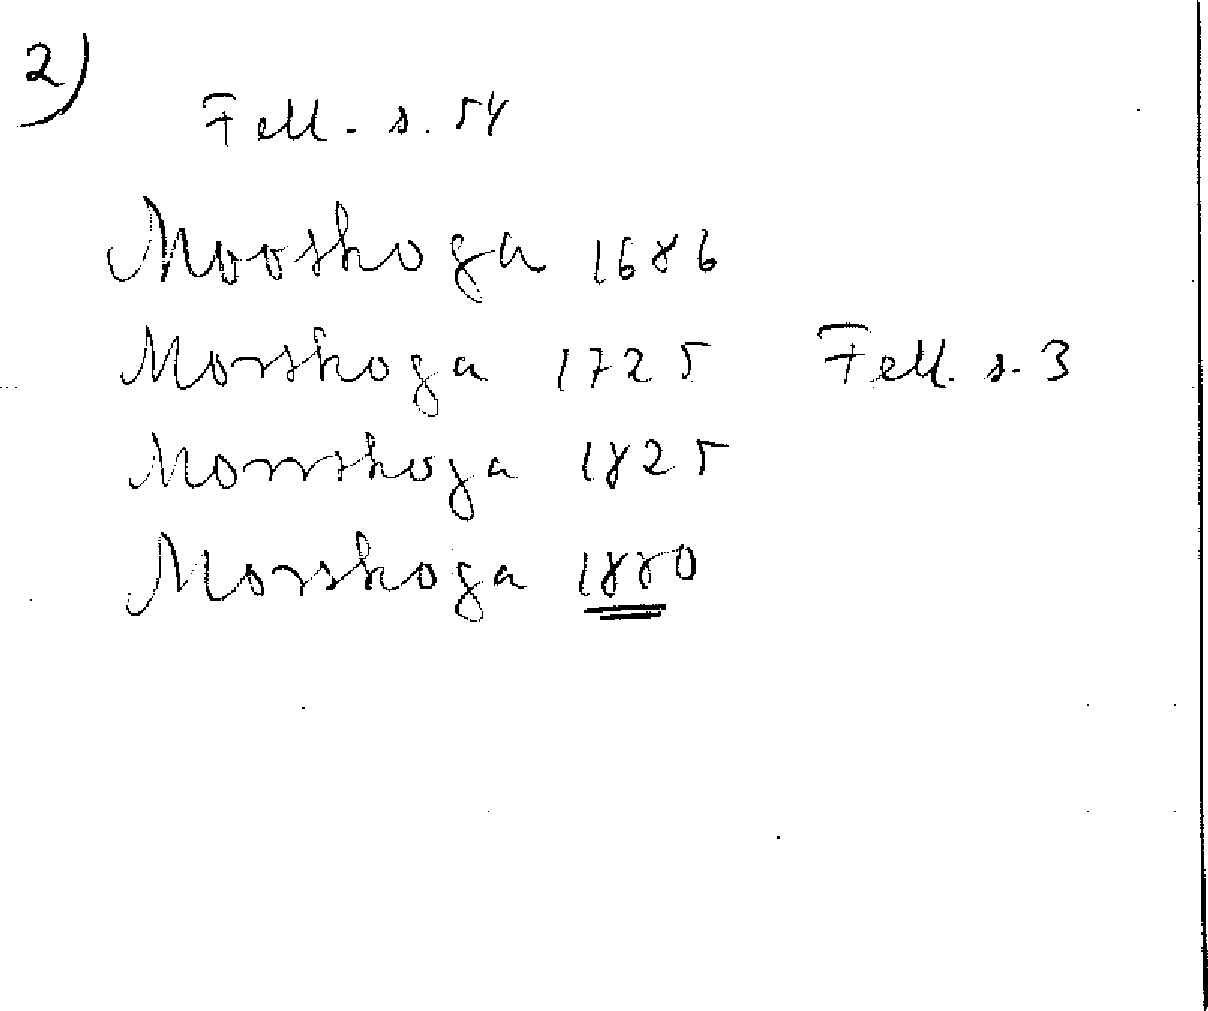 2)
Fell. s. 54
Mooskoga 1686
Morskoga 1725 Fell. s. 3
Morrskoga 1825
Morskoga 1880